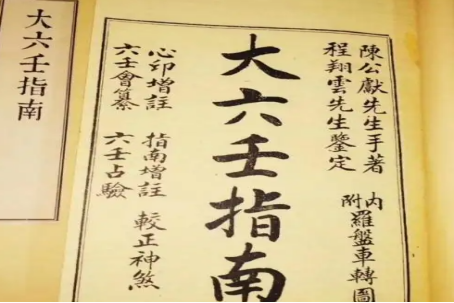 陳公獻先生手著
程翔雲先生鑒定
內附羅盤車轉圖
大六壬指南
心印增註
指南增註
較正神煞
六壬會纂
六壬占驗
大六壬指南